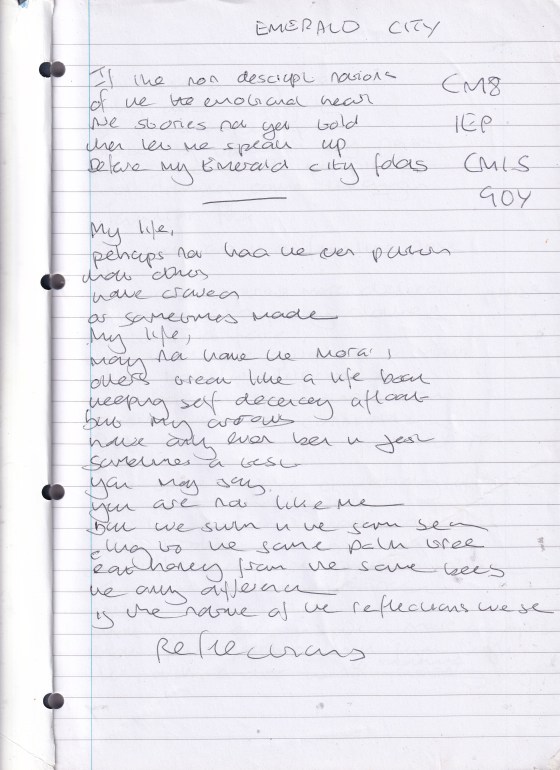 EMERALD CITY
If the non descript nations
of the the emotional heart
the stories not yet told
then let me speak up
before my Emerald city folds
CM8
1EP
CM1S
GOY
My life,
perhaps not had the ever
that others
have craved
or sometimes made
My life,
may not have the moral
others wear like a life boat
keeping self decency afloat
but my
have only ever been in jest
sometimes a test
you may say
you are not like me
but we swim in the same sea
cling to the same palm tree
eat honey from the same bees
the only difference
is the nature of the reflections we see
Reflections